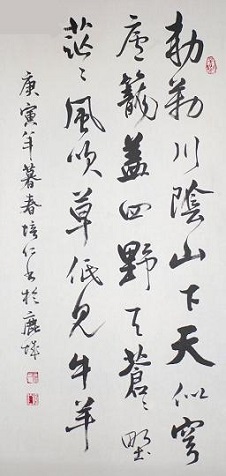 勅勒川陰山下天似穹
廬籠蓋四野天蒼〻野
茫〻風吹草低見牛羊
庚寅年暮春培仁書於鹿城